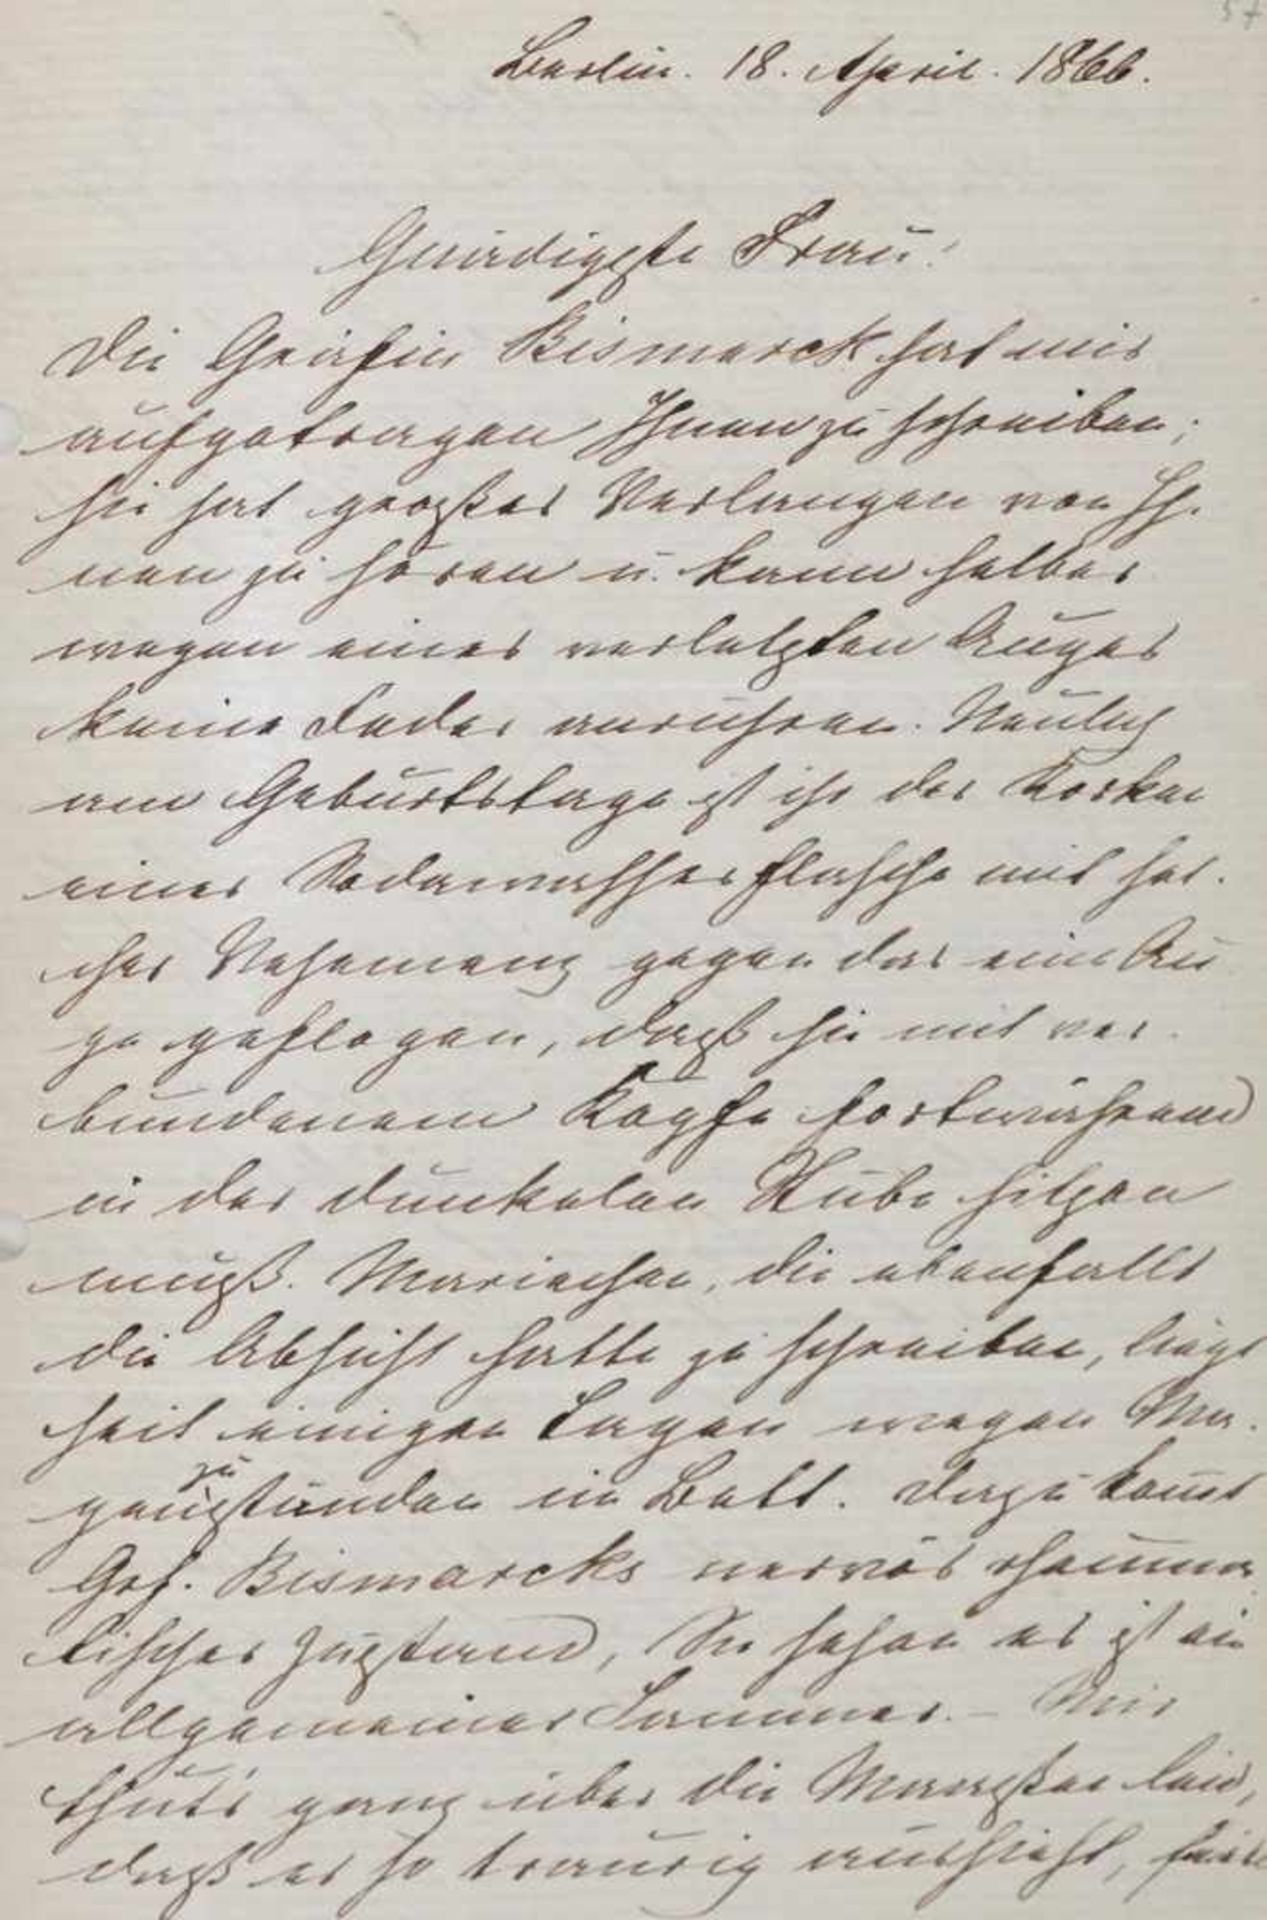 57
Berlin. 18. April. 1866.
Gnädigste Frau!
Die Gräfin Bismarck hat mir
aufgetragen Ihnen zu schreiben;
sie hat großes Verlangen von Ih-
nen zu hören u. kann selber
wegen eines verletzten Auges
keine Feder anrühren. Neulich
am Geburtstage ist ihr der Korken
einer Sodawasserflasche mit sol-
cher Vehemenz gegen das eine Au
ge geflogen, daß sie mit ver-
bundenem Kopfe fortwährend
in der dunkelen Stube sitzen
muß. Mariechen, die ebenfalls
die Absicht hatte zu schreiben, liegt
seit einigen Tagen wegen Ma-
genzustände im Bett. Dazu kommt
Grf. Bismarcks nervös rheuma
tischer Zustand, Sie sehen es ist ein
allgemeiner Jammer. – Mir
thuts ganz über die Maaßen leid,
daß es so traurig aussieht,